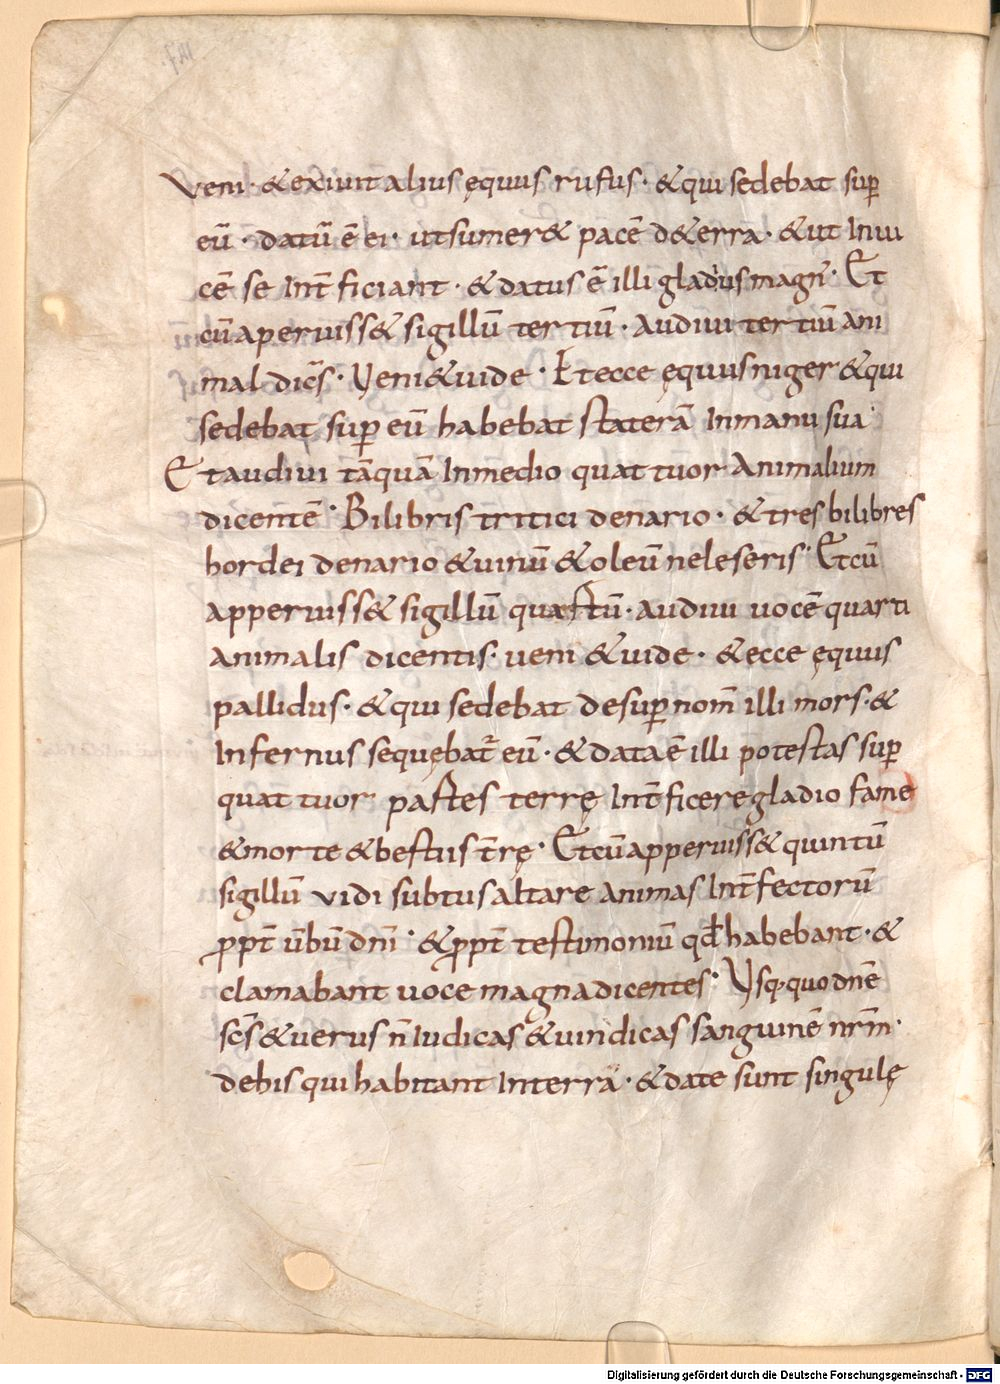 147.
Veni · & exiuit alius ęquus rufus · & qui sedebat sup
eū · datū ē ei · ut sumer& pacē d&erra · & ut Inui
cē se Int̄ficiant · & datus ē illi gladius magn̄ · Et
cū aperuiss& sigillū tertiū · audiui tertiū ani
mal dic̄s · Veni & uide · Et ecce ęquus niger & qui
sedebat sup eū habebat staterā In manu sua ·
Et audiui tāquā In medio quattuor Animalium
dicentē · Bilibris tritici denario · & tres bilibres
hordei denario & uinū & oleū ne leseris · Et cū
apperuiss& sigillū quartū · audiui uocē quarti
Animalis dicentis · ueni & uide · & ecce ęquus
pallidus · & qui sedebat desup nom̄ illi mors · &
Infernus sequebat̄ eū · & data ē illi potestas sup
quattuor partes terrę Int̄ficere gladio fame
& morte & bestiis t̄rę · Et cū apperuiss& quintū
sigillū vidi subtus altare animas Int̄fectorū
ppt̄ ūbū dnī · & ppt̄ testimoniū qđ habebant · &
clamabant uoce magna dicentes · Vsq; quo dnē
sc̄s & uerus n̄ Iudicas & uindicas sanguinē nr̄m ·
de his qui habitant In terra · & date sunt singulę
Digitalisierung gefördert durch die Deutsche Forschungsgemeinschaft - DFG